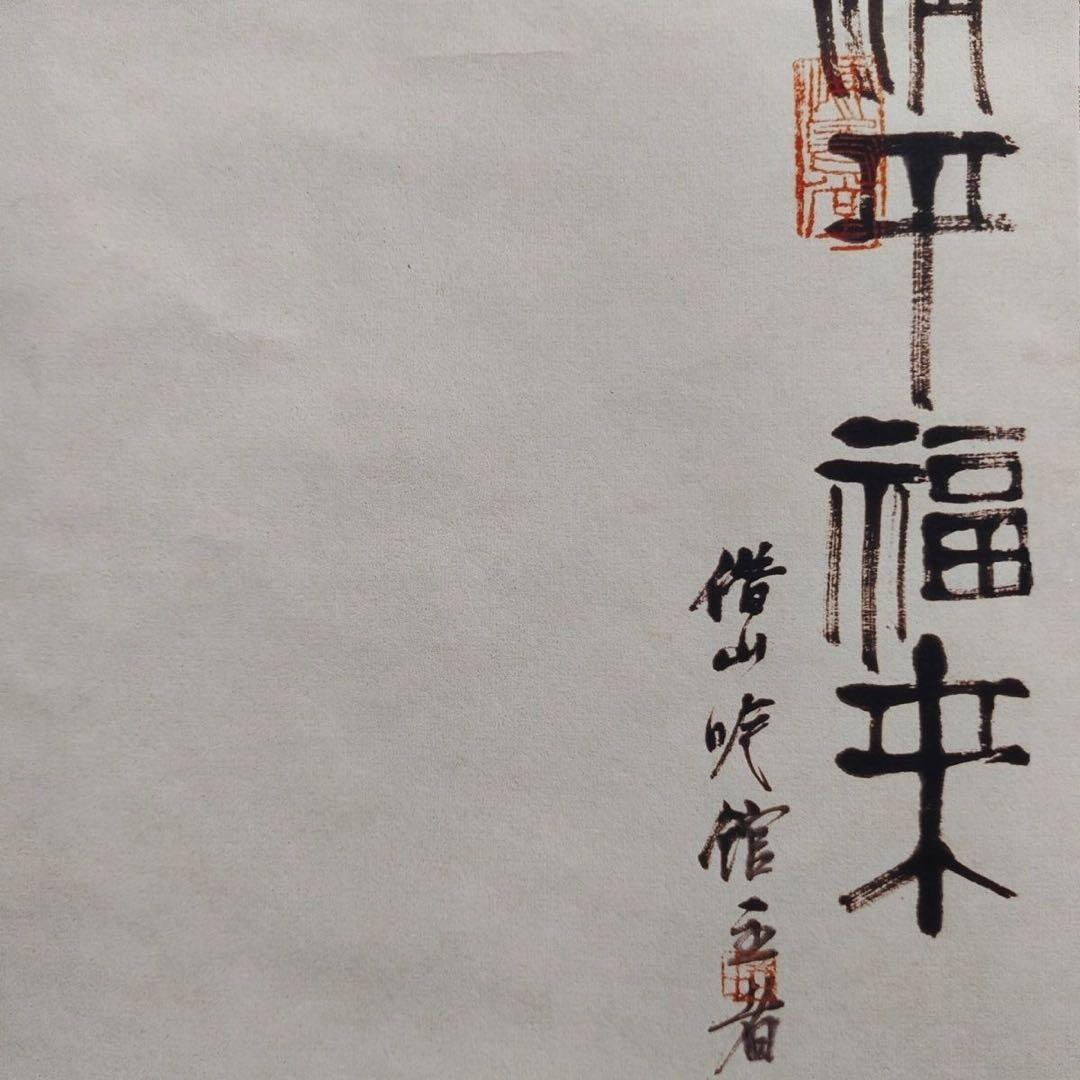 清平福來
借山吟館主者